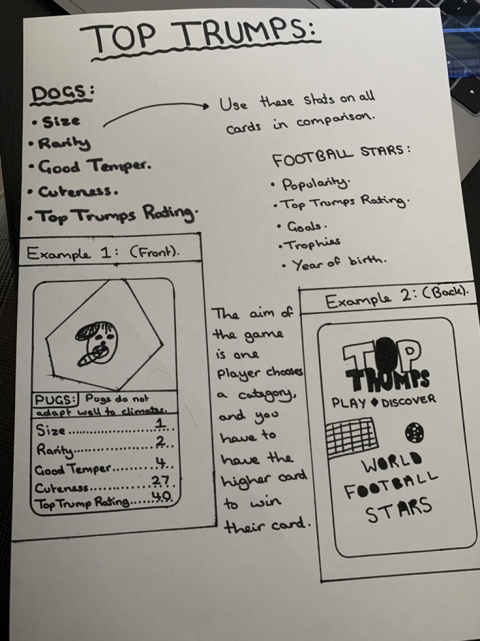 TOP TRUMPS:
DOGS:
• Size
• Rarity
• Good Temper.
• Cuteness.
• Top Trumps Rating.
Use these stats on all
cards in comparison.
FOOTBALL STARS:
• Popularity.
• Top Trumps Rating.
• Goals.
• Trophies
• Year of birth.
Example 1: (Front).
PUGS: Pugs do not
adapt well to climates.
Size..................1..
Rarity................2..
Good Temper........4..
Cuteness............27.
Top Trump Rating.....40.
The aim of
the game
is one
Player chooses
a category,
and you
have to
have the
higher card
to win
their card.
Example 2: (Back).
TOP
TRUMPS
PLAY ♦ DISCOVER
WORLD
FOOTBALL
STARS